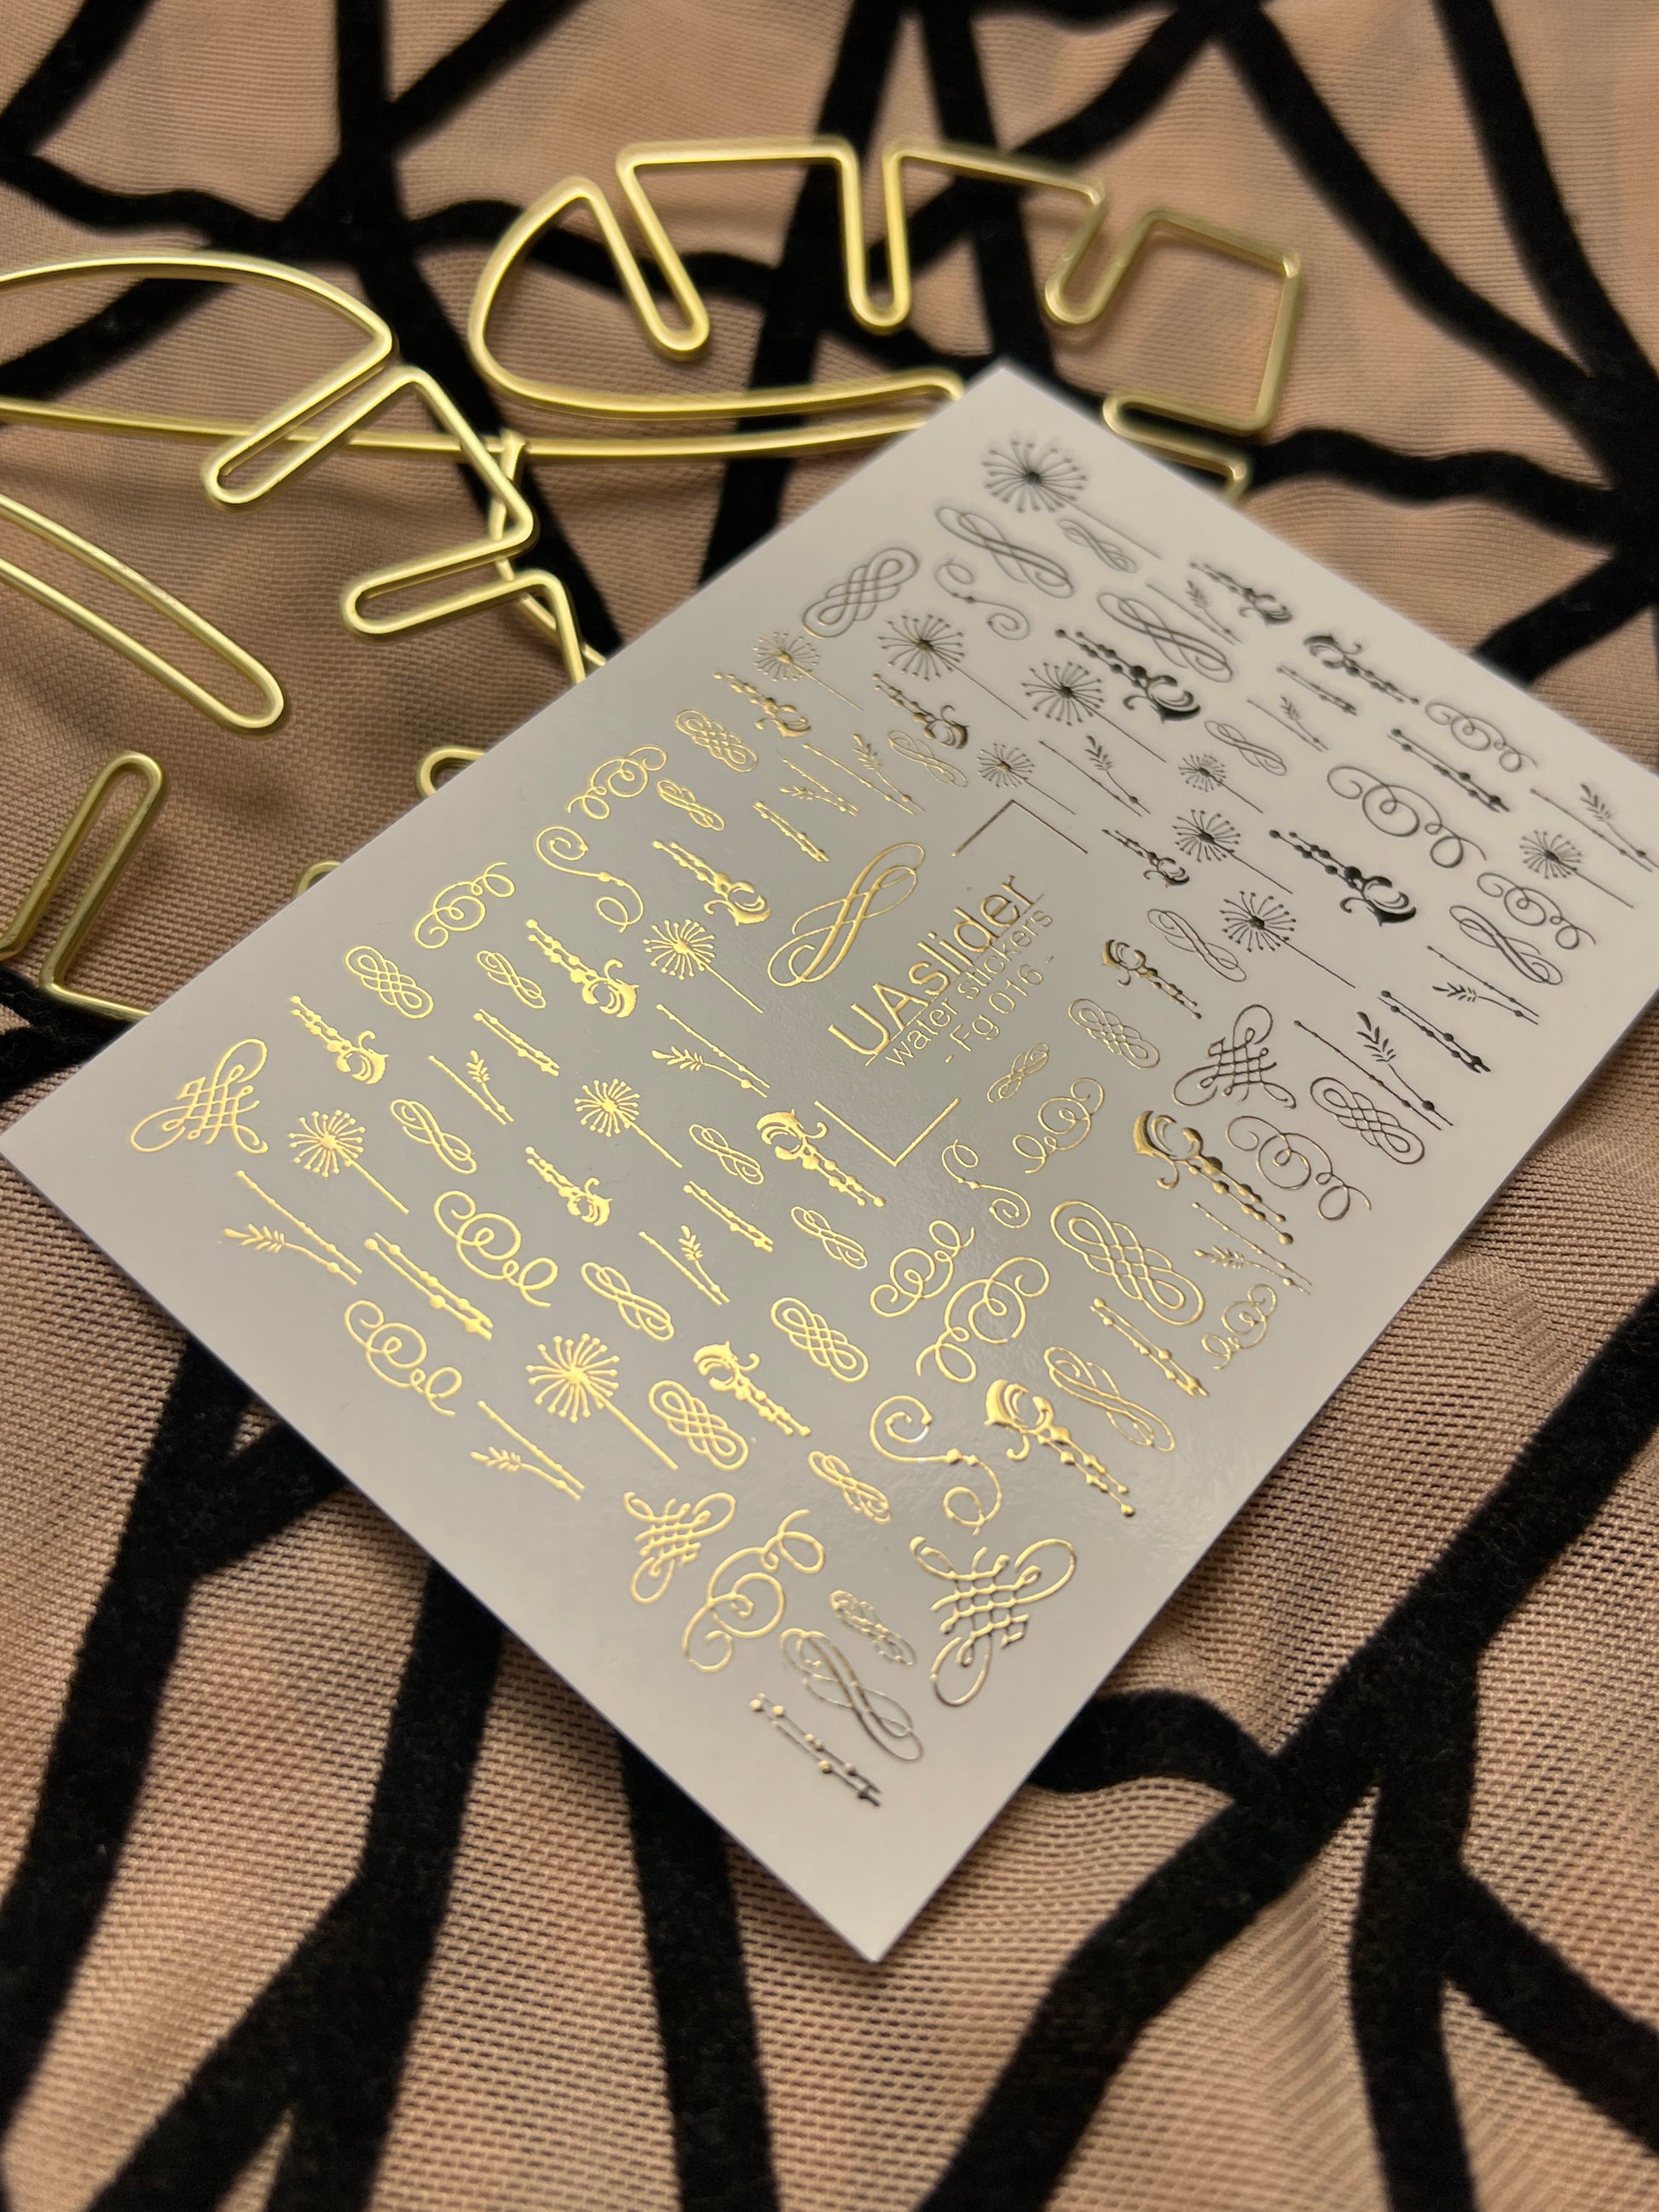 UAslider
water stickers
- Fg 016 -